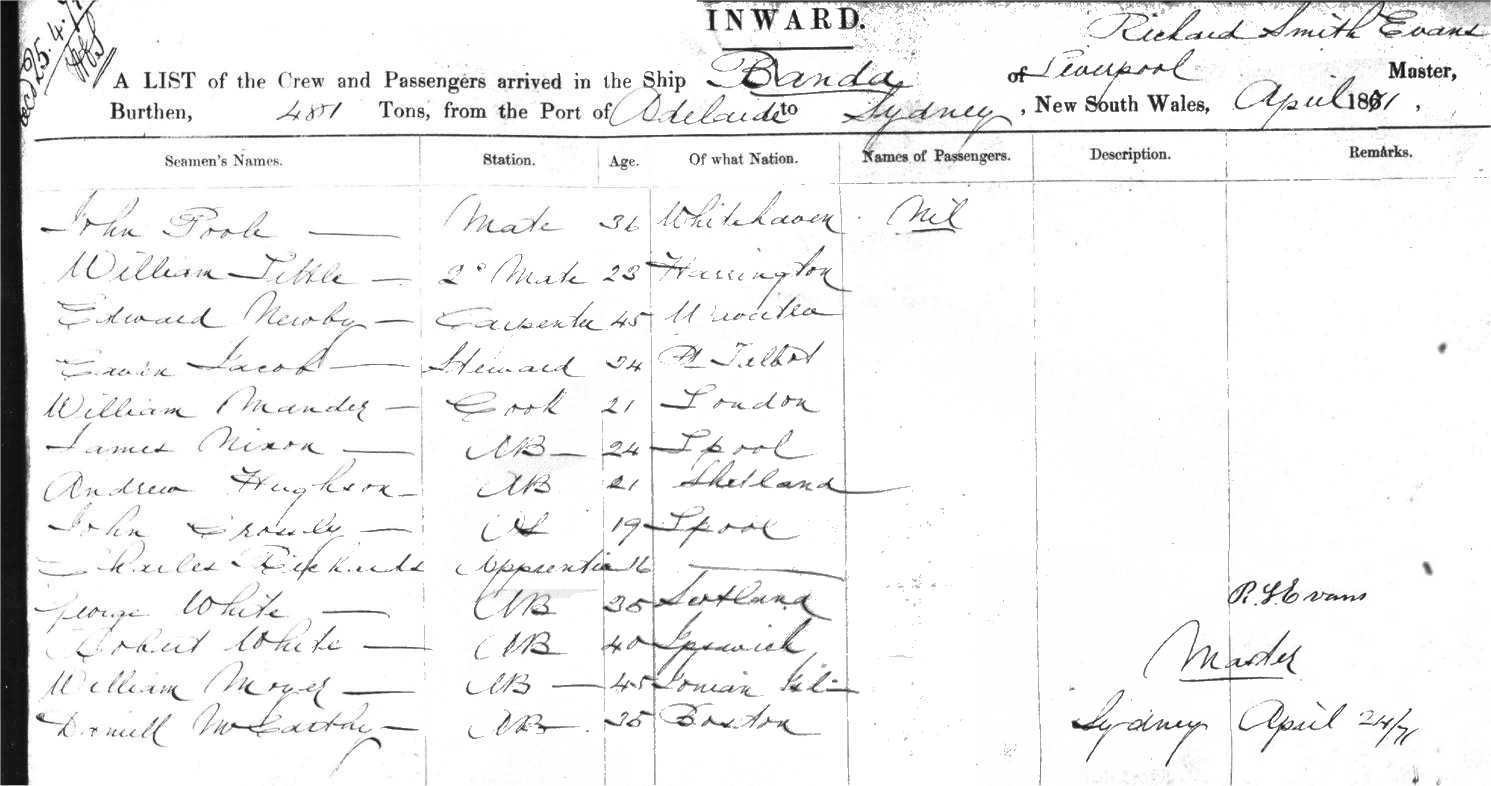 INWARD.
Richard Smith Evans
Recd 25.4.71
A LIST of the Crew and Passengers arrived in the Ship Banda of Liverpool Master,
Burthen, 481 Tons, from the Port of Adelaide to Sydney, New South Wales, April 1871,
Seamen's Names. Station. Age. Of what Nation. Names of Passengers. Description. Remarks.
John Poole — Mate 36 Whitehaven Nil
William Tittle — 2º Mate 23 Harrington
Edward Newby — Carpenter 45
Jacob — Steward 24 Pt Talbot
William Mander — Cook 21 London
James Nixon — AB — 24 Lpool
Andrew Hughson — AB 21 Shetland
John Crossly — OS 19 Lpool
Charles Rickards Apprentice 16 —
George White — AB 35 Scotland
R. S. Evans
Robert White — AB 40 Ipswich
Master
William Moyer — AB — 45 Ionian Isl
Daniell McCarthy — AB 35 Boston
Sydney April 24/71